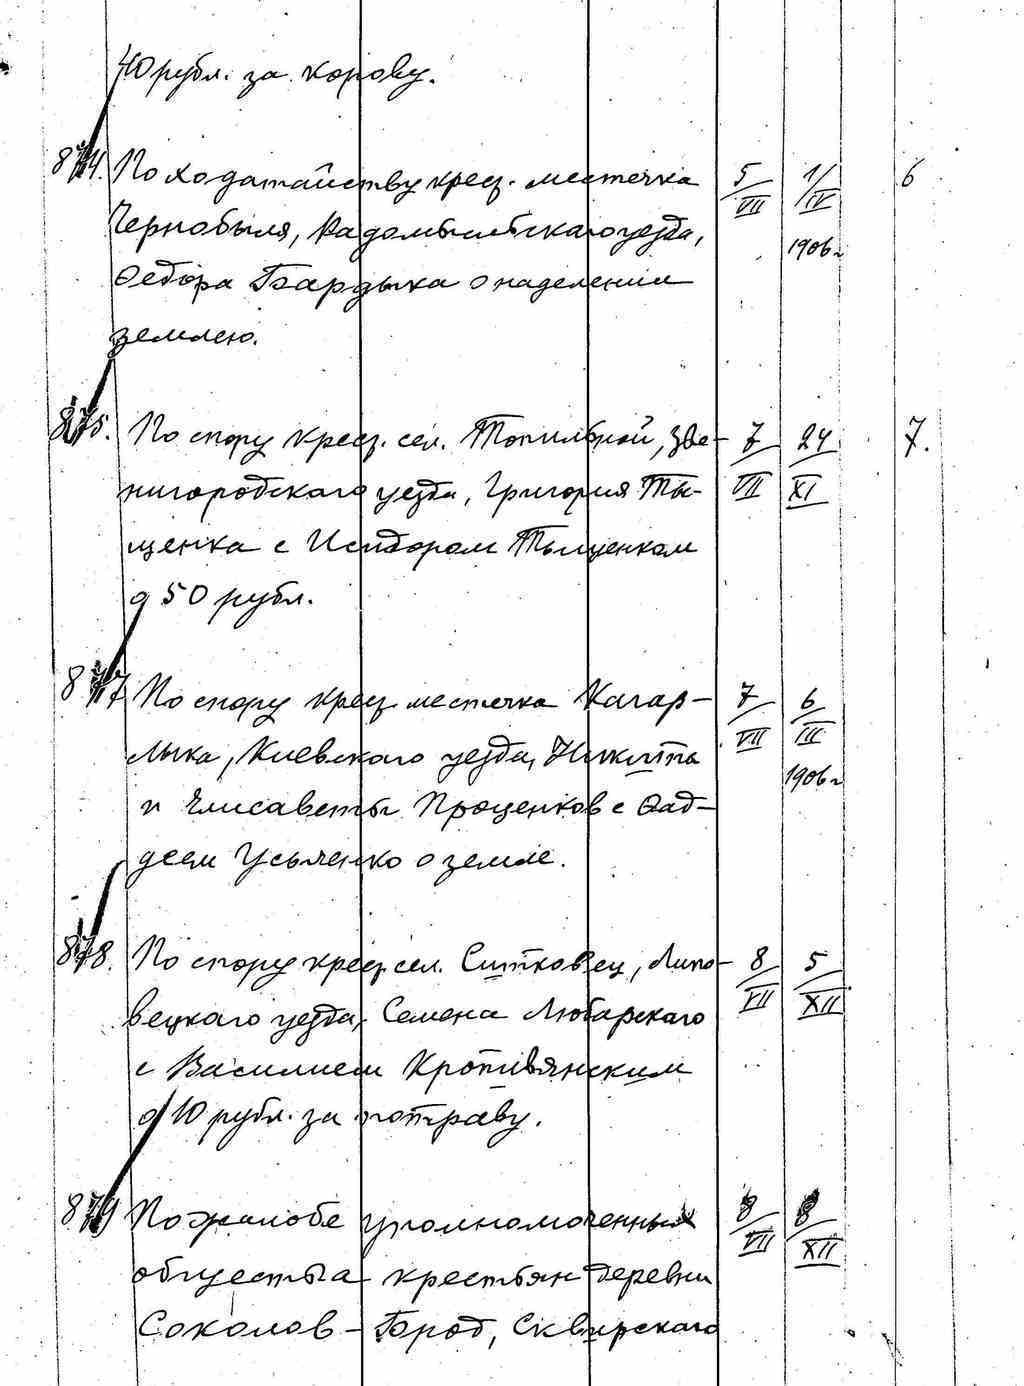 40 рубл. за корову.
874. По ходатайству крес. местечка 5/VII 1/IV 6
Чернобыля, Радомысльскаго уезда, 1906г
Федора Бардыка о наделении
землею.
875. По спору крес. сел. Топильной, Зве- 7/VII 24/XI 7.
нигородскаго уезда, Григория Ты-
щенка с Исидором Тыщенком
о 50 рубл.
877 По спору крес. местечка Кагар- 7/VII 6/III
лыка, Киевского уезда, Никиты 1906г
и Елисаветы Проценков с Фад-
деем Усыченко о земле.
878. По спору крес. сел. Ситковец, Липо- 8/VII 5/XII
вецкаго уезда, Семена Любарскаго
с Василием Кропивянским
о 10 рубл. за потраву.
879 По жалобе уполномоченных 8/VII 8/XII
общества крестьян деревни
Соколов-Город, Сквирскаго